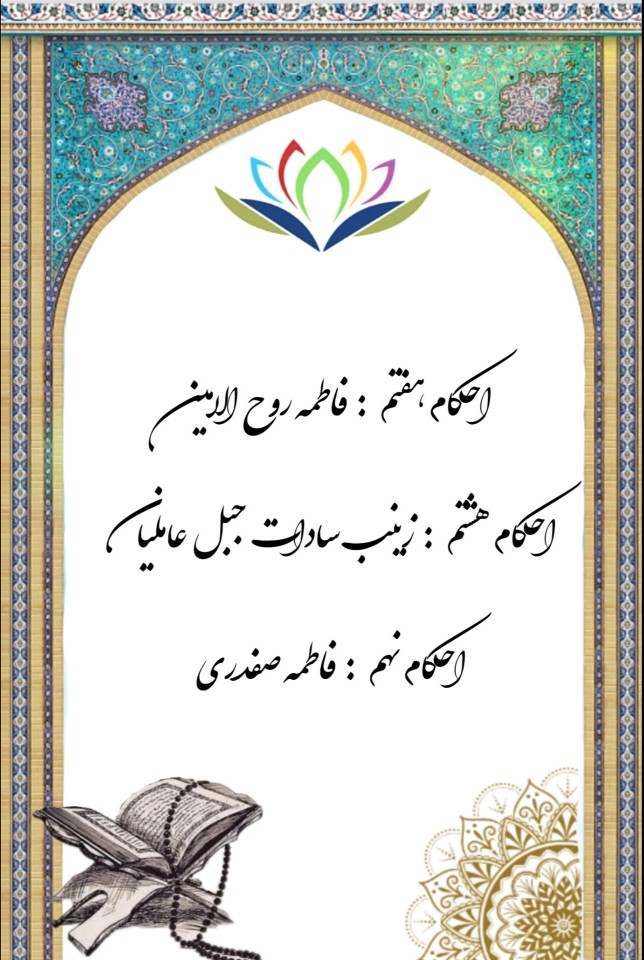 احکام هفتم : فاطمه روح الامین
احکام هشتم : زینب سادات جبل عاملیان
احکام نهم : فاطمه صفدری